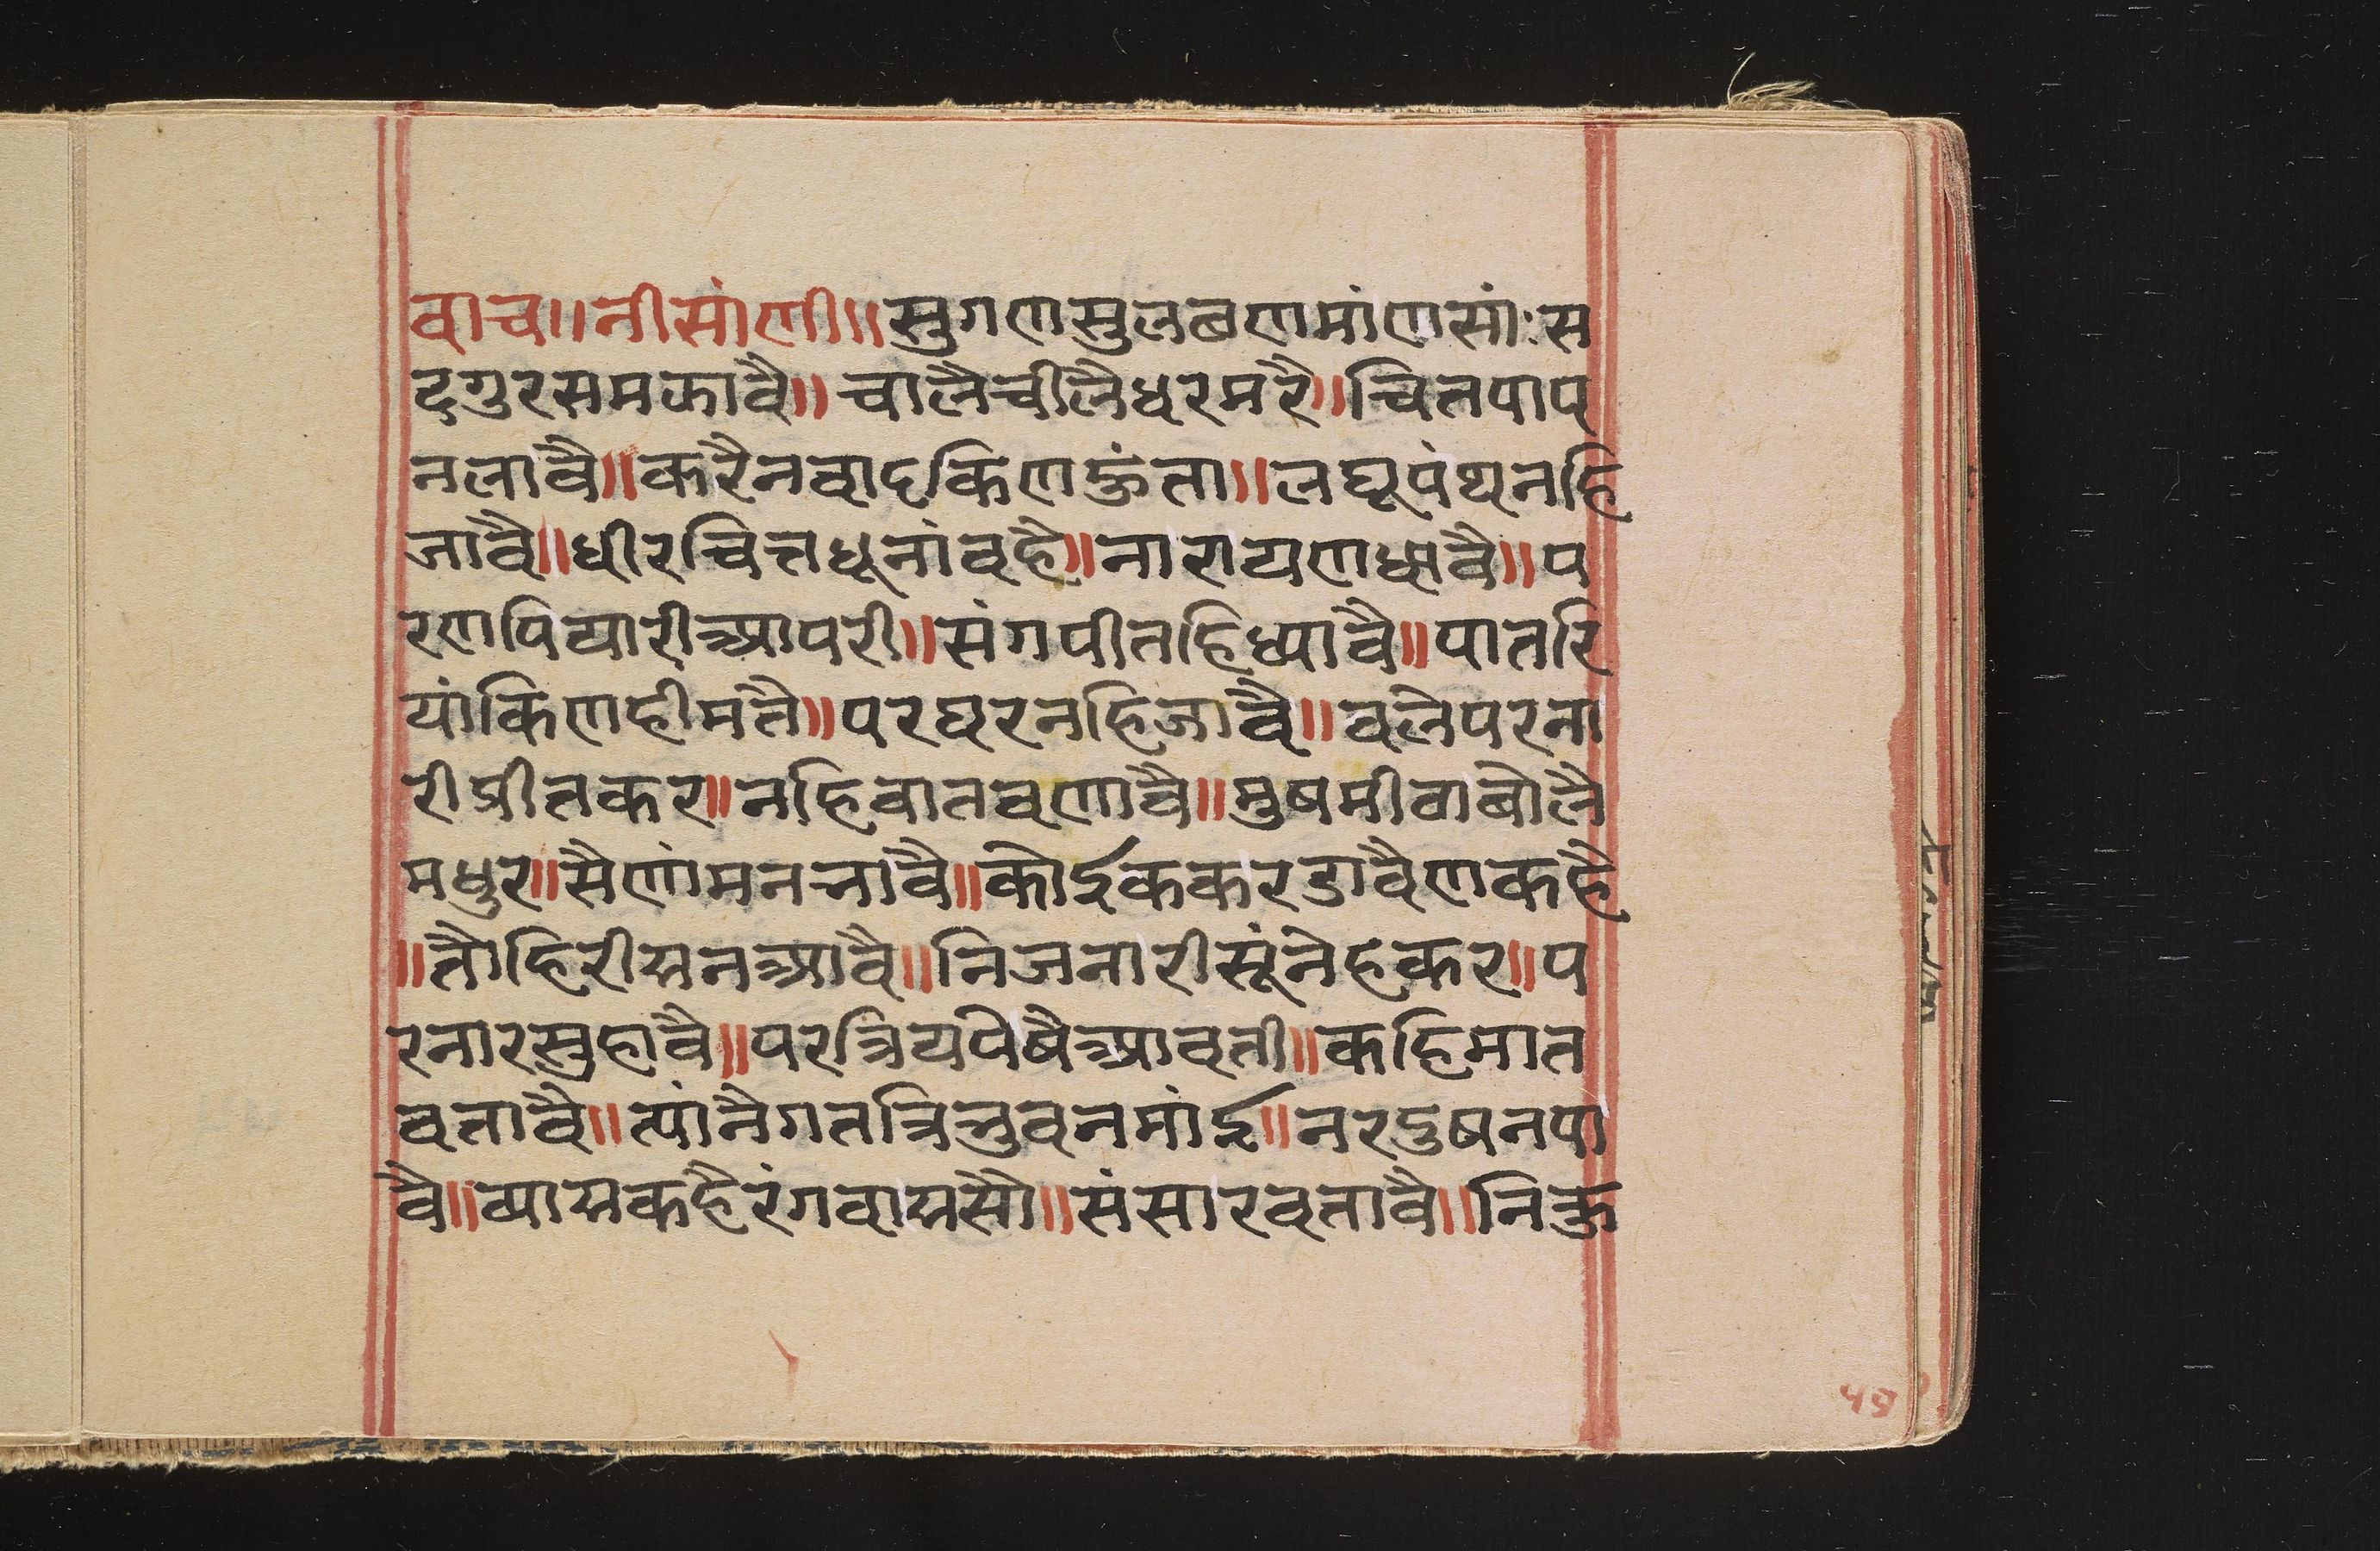 वाच॥नीसांणी॥सुगणसुलबणमांणसांःस
दगुरसमझावै॥चालैचीलैधरमरै॥चितपाप
नलावै॥करैनवादकिणऊंता॥लघूपंथनहि
जावै॥धीरचित्तधूनांवहै॥नारायणधावै॥प
रणपियारीआपरी॥संगपीतहिध्यावै॥पातरि
यांकिणहीमतै॥परघरनहिजावै॥वलेपरना
रीप्रीतकर॥नहिवातवणावै॥मुषमीठाबोलै
मधुर॥सैणांमनभावै॥कोईककरडावैणकहै
॥तौहिरीसनआवै॥निजनारीसूंनेहकर॥प
रनारसुहावै॥परत्रियपेषैआवती॥कहिमात
वतावै॥त्यांनैगतत्रिभुवनमांई॥नरदुषनपा
वै॥व्यासकहैरंगवाससौ॥संसारवतावै॥निऊ
५१